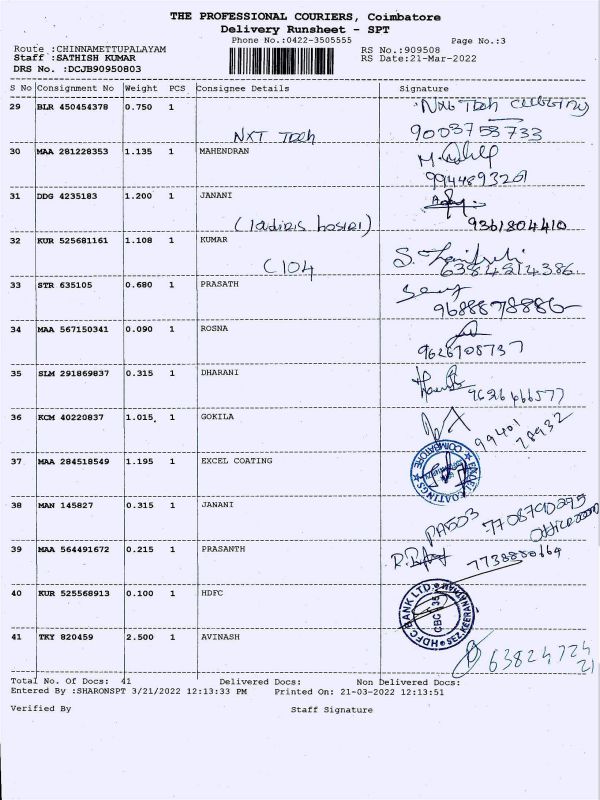 THE PROFESSIONAL COURIERS, Coimbatore
Delivery Runsheet - SPT
Phone No.:0422-3505555
Page No.:3
Route :CHINNAMETTUPALAYAM
RS No.:909508
Staff :SATHISH KUMAR
RS Date:21-Mar-2022
DRS No. :DCJB90950803
S No Consignment No Weight PCS Consignee Details Signature
29 BLR 450454378 0.750 1
NXT Tech
9003753733
30 MAA 281228353 1.135 1 MAHENDRAN
9944893201
31 DDG 4235183 1.200 1 JANANI
9361804410
32 KUR 525681161 1.108 1 KUMAR
C104
6384214386
33 STR 635105 0.680 1 PRASATH
9688878886
34 MAA 567150341 0.090 1 ROSNA
9626708737
35 SLM 291869837 0.315 1 DHARANI
9626666577
36 KCM 40220837 1.015 1 GOKILA
99401
78932
37 MAA 284518549 1.195 1 EXCEL COATING
EXCEL COATINGS
COIMBATORE
38 MAN 145827 0.315 1 JANANI
7708790295
39 MAA 564491672 0.215 1 PRASANTH
7738850664
40 KUR 525568913 0.100 1 HDFC
HDFC BANK LTD.
41 TKY 820459 2.500 1 AVINASH
63824724
21
Total No. Of Docs: 41 Delivered Docs: Non Delivered Docs:
Entered By :SHARONSPT 3/21/2022 12:13:33 PM Printed On: 21-03-2022 12:13:51
Verified By Staff Signature